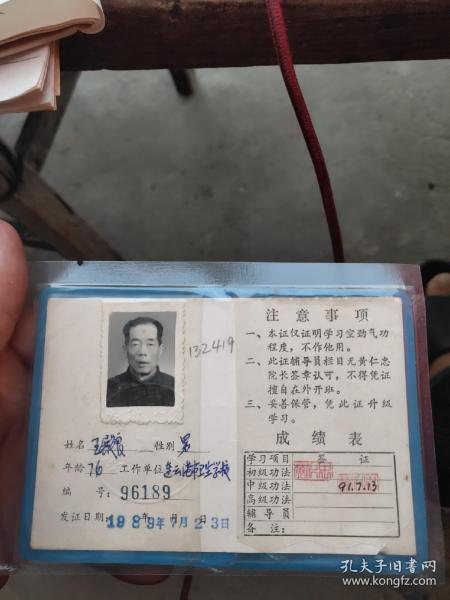 132419
姓名 性别 男
年龄 76 工作单位 连云港市卫生学校
编 号: 96189
发证日期: 1989年7月23日
注意事项
一、本证仅证明学习空劲气功
程度，不作他用。
二、此证辅导员栏目无黄仁忠
院长签章认可，不得凭证
擅自在外开班。
三、妥善保管，凭此证升级
学习。
成绩表
学习项目 签 证
初级功法
中级功法 91.7.13
高级功法
辅导员
备 注：
孔夫子旧书网
www.kongfz.com